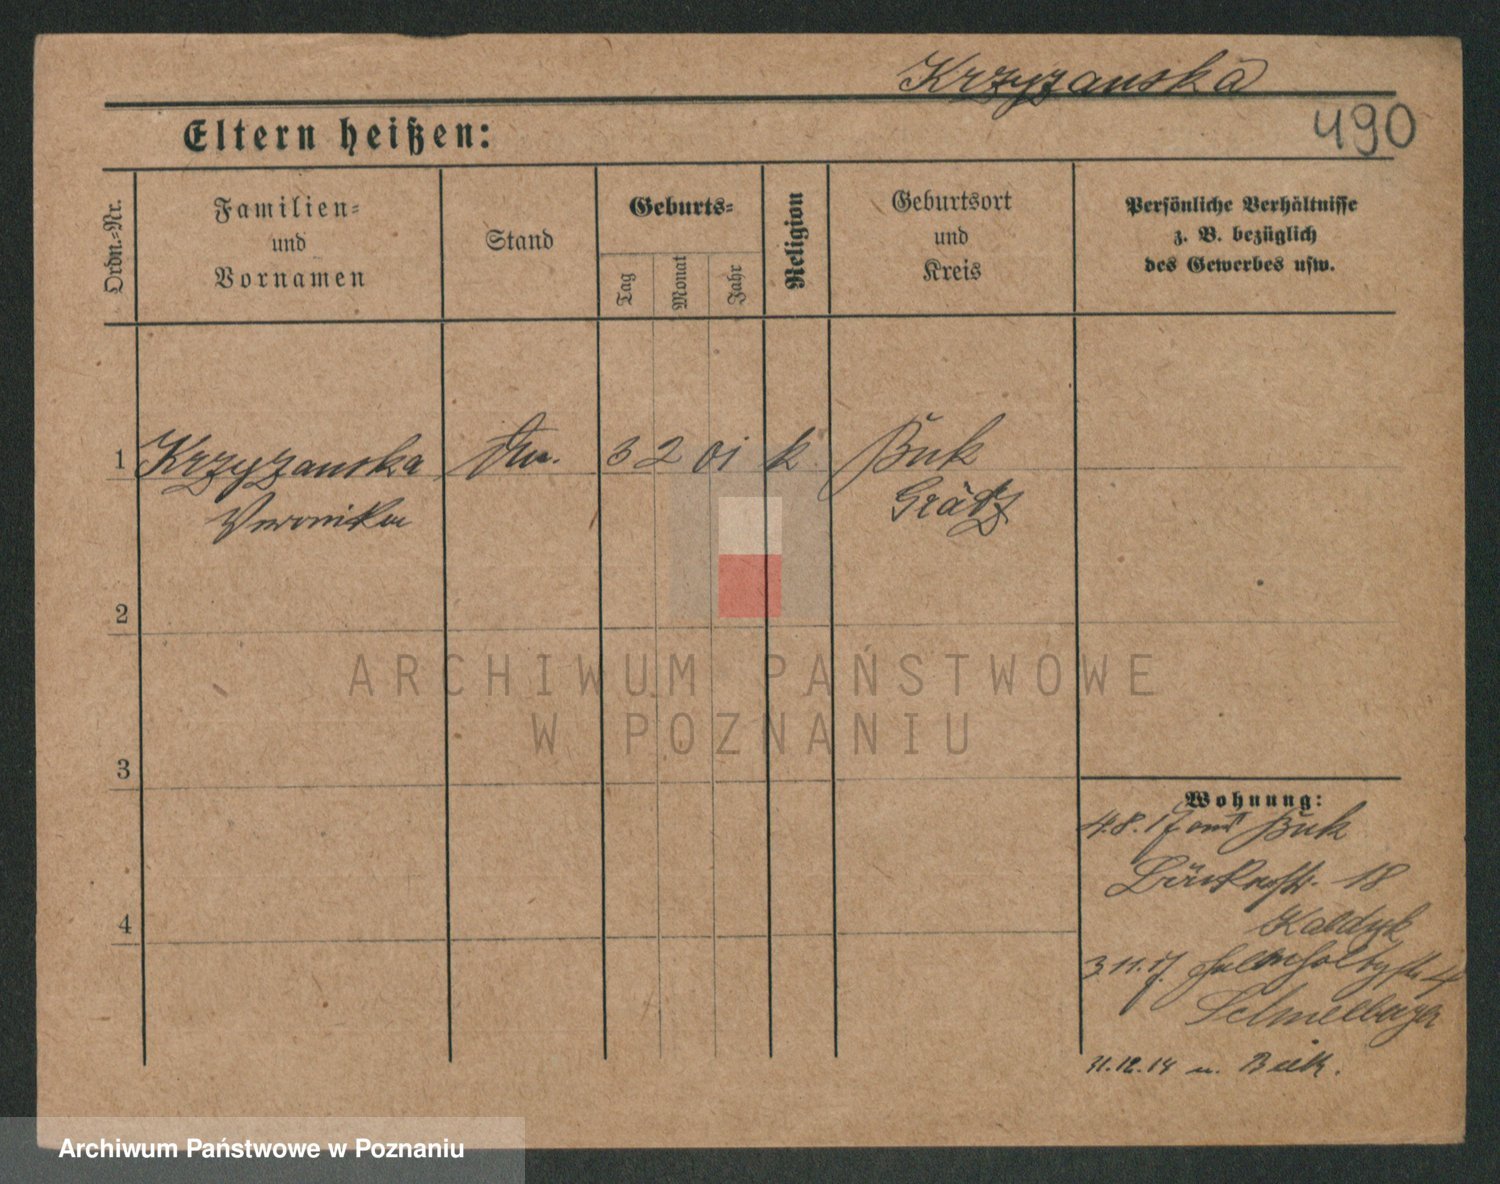 Krzyzanska
490
Eltern heißen:
Ordn.=Nr.
Familien=
und
Vornamen
Stand
Geburts=
Tag
Monat
Jahr
Religion
Geburtsort
und
Kreis
Persönliche Verhältnisse
z. B. bezüglich
des Gewerbes usw.
1 Krzyzanska 3 2 01 k Buk
Veronika Grätz
2
3
4
ARCHIWUM PAŃSTWOWE
W POZNANIU
Wohnung:
4.8.17 Buk
18
3.11.17
Buk.
Archiwum Państwowe w Poznaniu